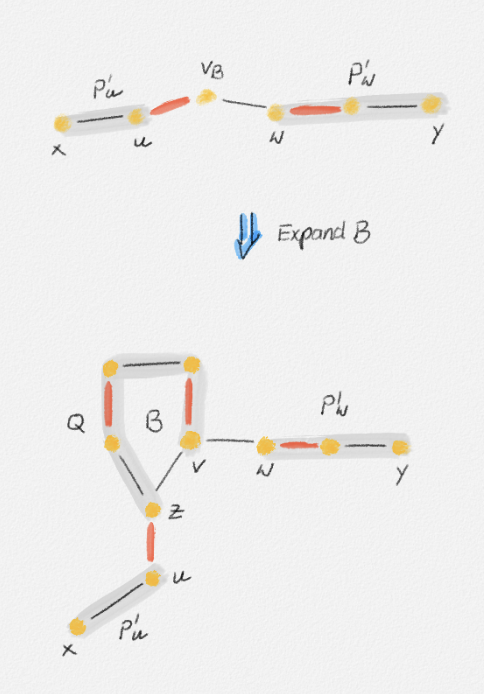 P'u v_B P'w
x u w y
Expand B
Q B P'w
v w y
z
u
x P'u